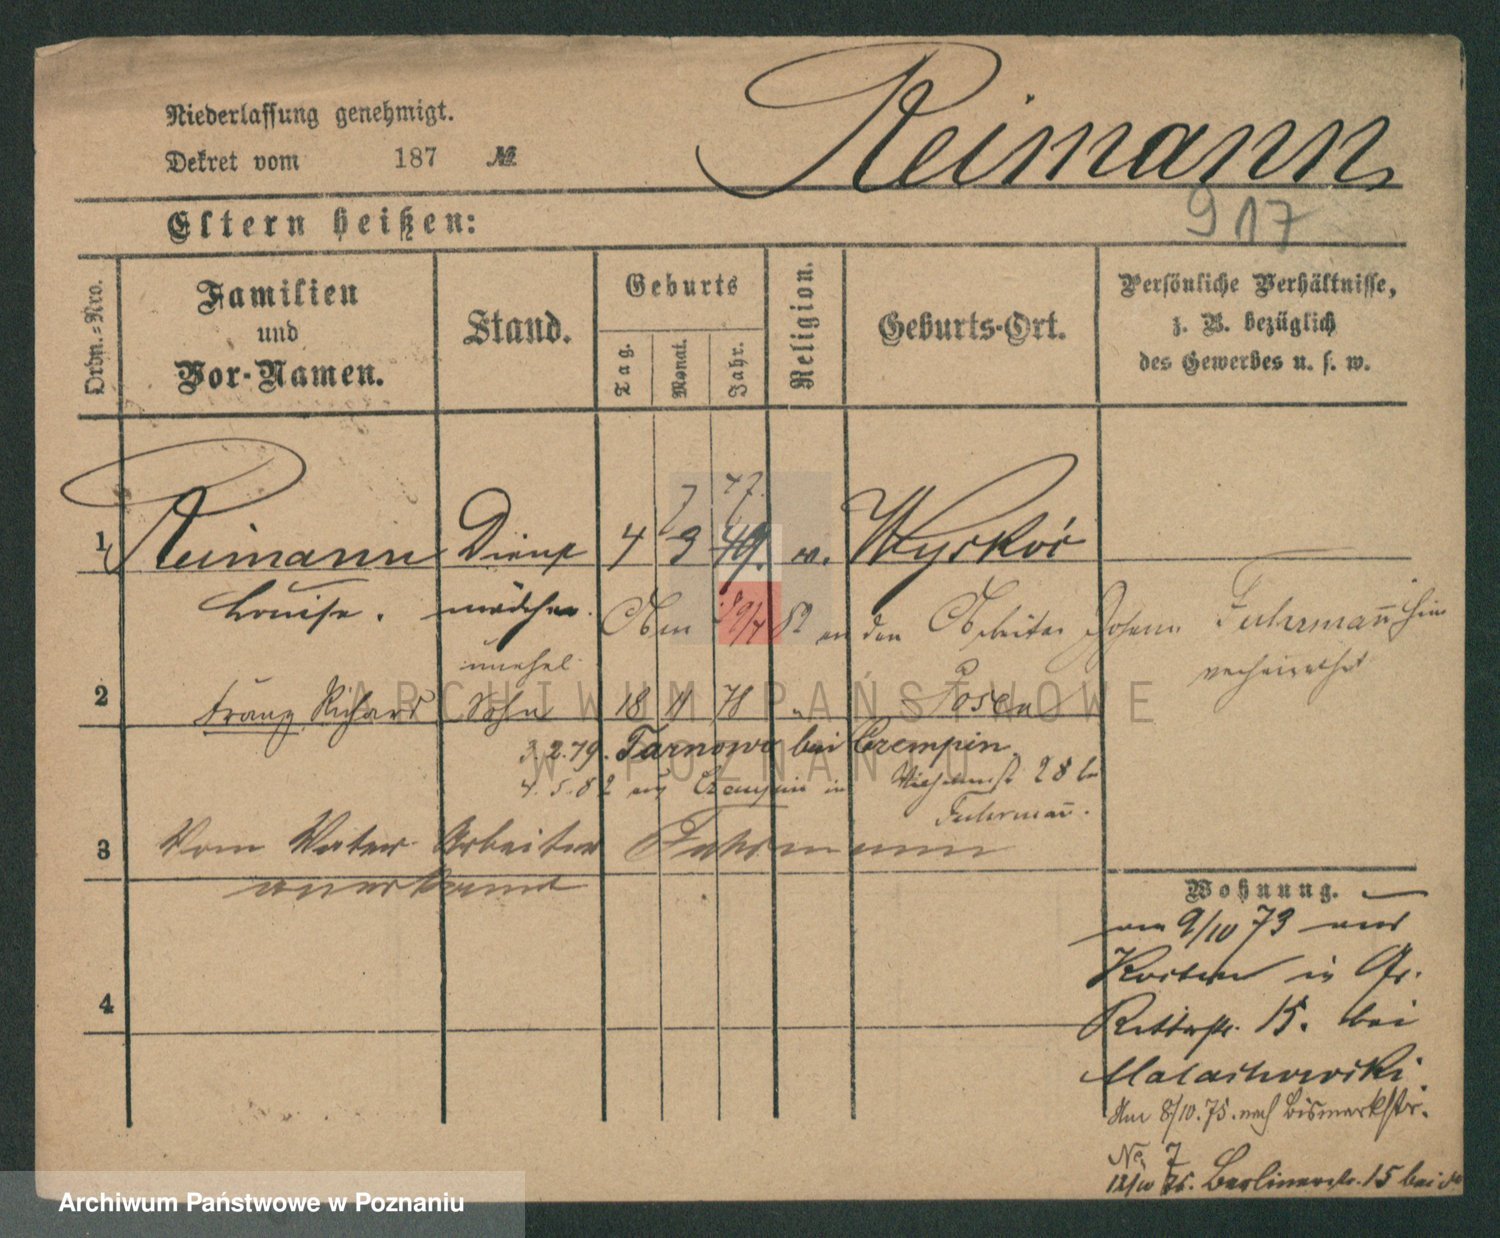 Niederlassung genehmigt.
Dekret vom 187 №
Reimann
917
Eltern heißen:
Ordn.-Nro.
Familien
und
Vor-Namen.
Stand.
Geburts
Tag.
Monat.
Jahr.
Religion.
Geburts-Ort.
Persönliche Verhältnisse,
z. B. bezüglich
des Gewerbes u. s. w.
7 47.
1 Reimann Dienst 4 3 49.
Louise. mädchen.
82 an den Arbeiter Johann Fuhrmann hier
verheirathet
unehel.
2 Franz Richard Sohn 18 11 78 Posen
3.2.79. Tarnowo bei Czempin
4.5.82 aus Czempin in 28 b
Fuhrmann.
3 Vom Vater Arbeiter Fuhrmann
anerkannt
4
Wohnung.
am 9/10 73 aus
Kosten in Gr.
Ritterstr. 15. bei
Malachowski
Am 8/10.75. nach Bismarkstr.
No. 7
12/10 76. Berlinerstr. 15 bei
ARCHIWUM PAŃSTWOWE
W POZNANIU
Archiwum Państwowe w Poznaniu